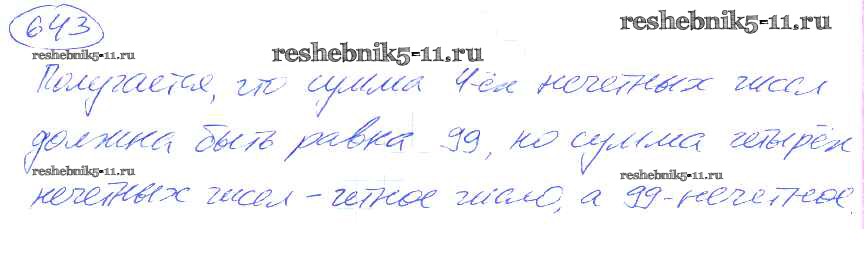 643
reshebnik5-11.ru
reshebnik5-11.ru
reshebnik5-11.ru
Получается, что сумма 4-ёх нечетных чисел
должна быть равна 99, но сумма четырёх
reshebnik5-11.ru
reshebnik5-11.ru
нечетных чисел - четное число, а 99 - нечетное.